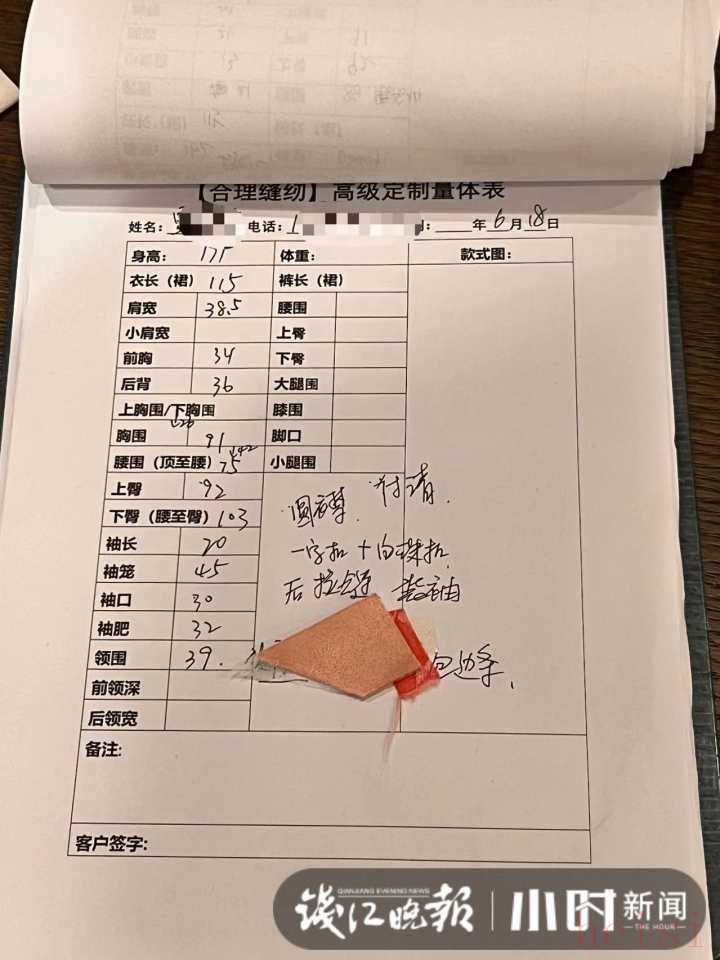 【合理缝纫】高级定制量体表
姓名: 电话: 1 年6月18日
身高: 175 体重: 款式图:
衣长（裙） 115 裤长（裙）
肩宽 38.5 腰围
小肩宽 上臀
前胸 34 下臀
后背 36 大腿围
上胸围/下胸围 膝围
胸围 91 脚口
腰围（顶至腰） 75 小腿围
上臀 92
下臀（腰至臀） 103
圆襟
一字扣+白珠扣
后拉链 套袖
袖长 20
袖笼 45
袖口 30
袖肥 32
领围 39. 包边条
前领深
后领宽
备注:
客户签字:
QIANJIANG EVENING NEWS
钱江晚报 小时新闻
THE HOUR